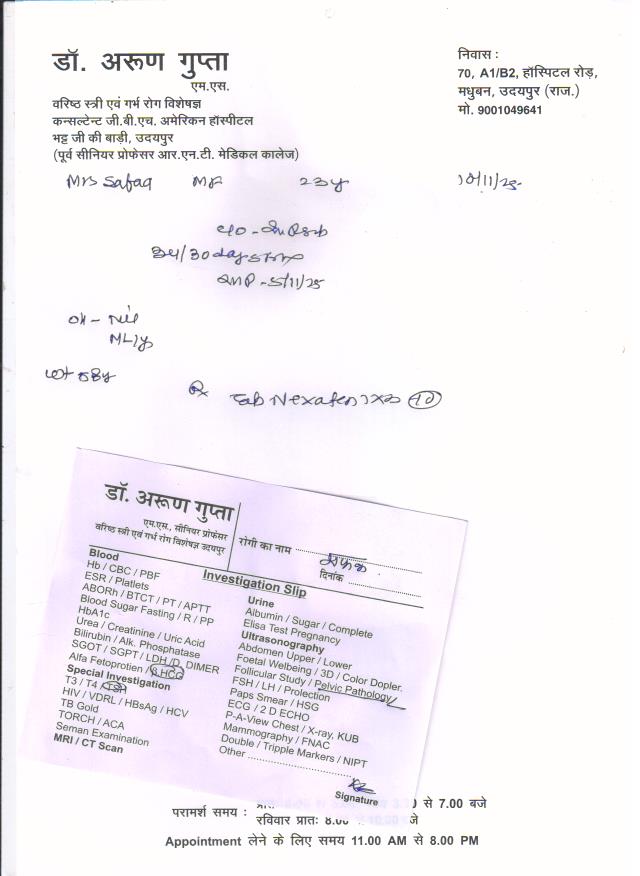 डॉ. अरूण गुप्ता
एम.एस.
वरिष्ठ स्त्री एवं गर्भ रोग विशेषज्ञ
कन्सल्टेन्ट जी.बी.एच. अमेरिकन हॉस्पीटल
भट्ट जी की बाड़ी, उदयपुर
(पूर्व सीनियर प्रोफेसर आर.एन.टी. मेडिकल कालेज)
निवास :
70, A1/B2, हॉस्पिटल रोड़,
मधुबन, उदयपुर (राज.)
मो. 9001049641
Mrs Safaq 23y 10/11/25
3-4/30 days
LMP - 5/11/25
OH - Nil
ML 1y
Wt 58y
Rx Tab Nexafen 1x2 10
डॉ. अरूण गुप्ता
एम.एस., सीनियर प्रोफेसर
वरिष्ठ स्त्री एवं गर्भ रोग विशेषज्ञ उदयपुर
रोगी का नाम
दिनांक
Investigation Slip
Blood
Hb / CBC / PBF
ESR / Platlets
ABORh / BTCT / PT / APTT
Blood Sugar Fasting / R / PP
HbA1c
Urea / Creatinine / Uric Acid
Bilirubin / Alk. Phosphatase
SGOT / SGPT / LDH /D. DIMER
Alfa Fetoprotien / β.HCG
Special Investigation
T3 / T4 / TSH
HIV / VDRL / HBsAg / HCV
TB Gold
TORCH / ACA
Seman Examination
MRI / CT Scan
Urine
Albumin / Sugar / Complete
Elisa Test Pregnancy
Ultrasonography
Abdomen Upper / Lower
Foetal Welbeing / 3D / Color Dopler.
Follicular Study / Pelvic Pathology
FSH / LH / Prolection
Paps Smear / HSG
ECG / 2 D ECHO
P-A-View Chest / X-ray, KUB
Mammography / FNAC
Double / Tripple Markers / NIPT
Other
Signature
परामर्श समय : से 7.00 बजे
रविवार प्रातः 8.00
Appointment लेने के लिए समय 11.00 AM से 8.00 PM